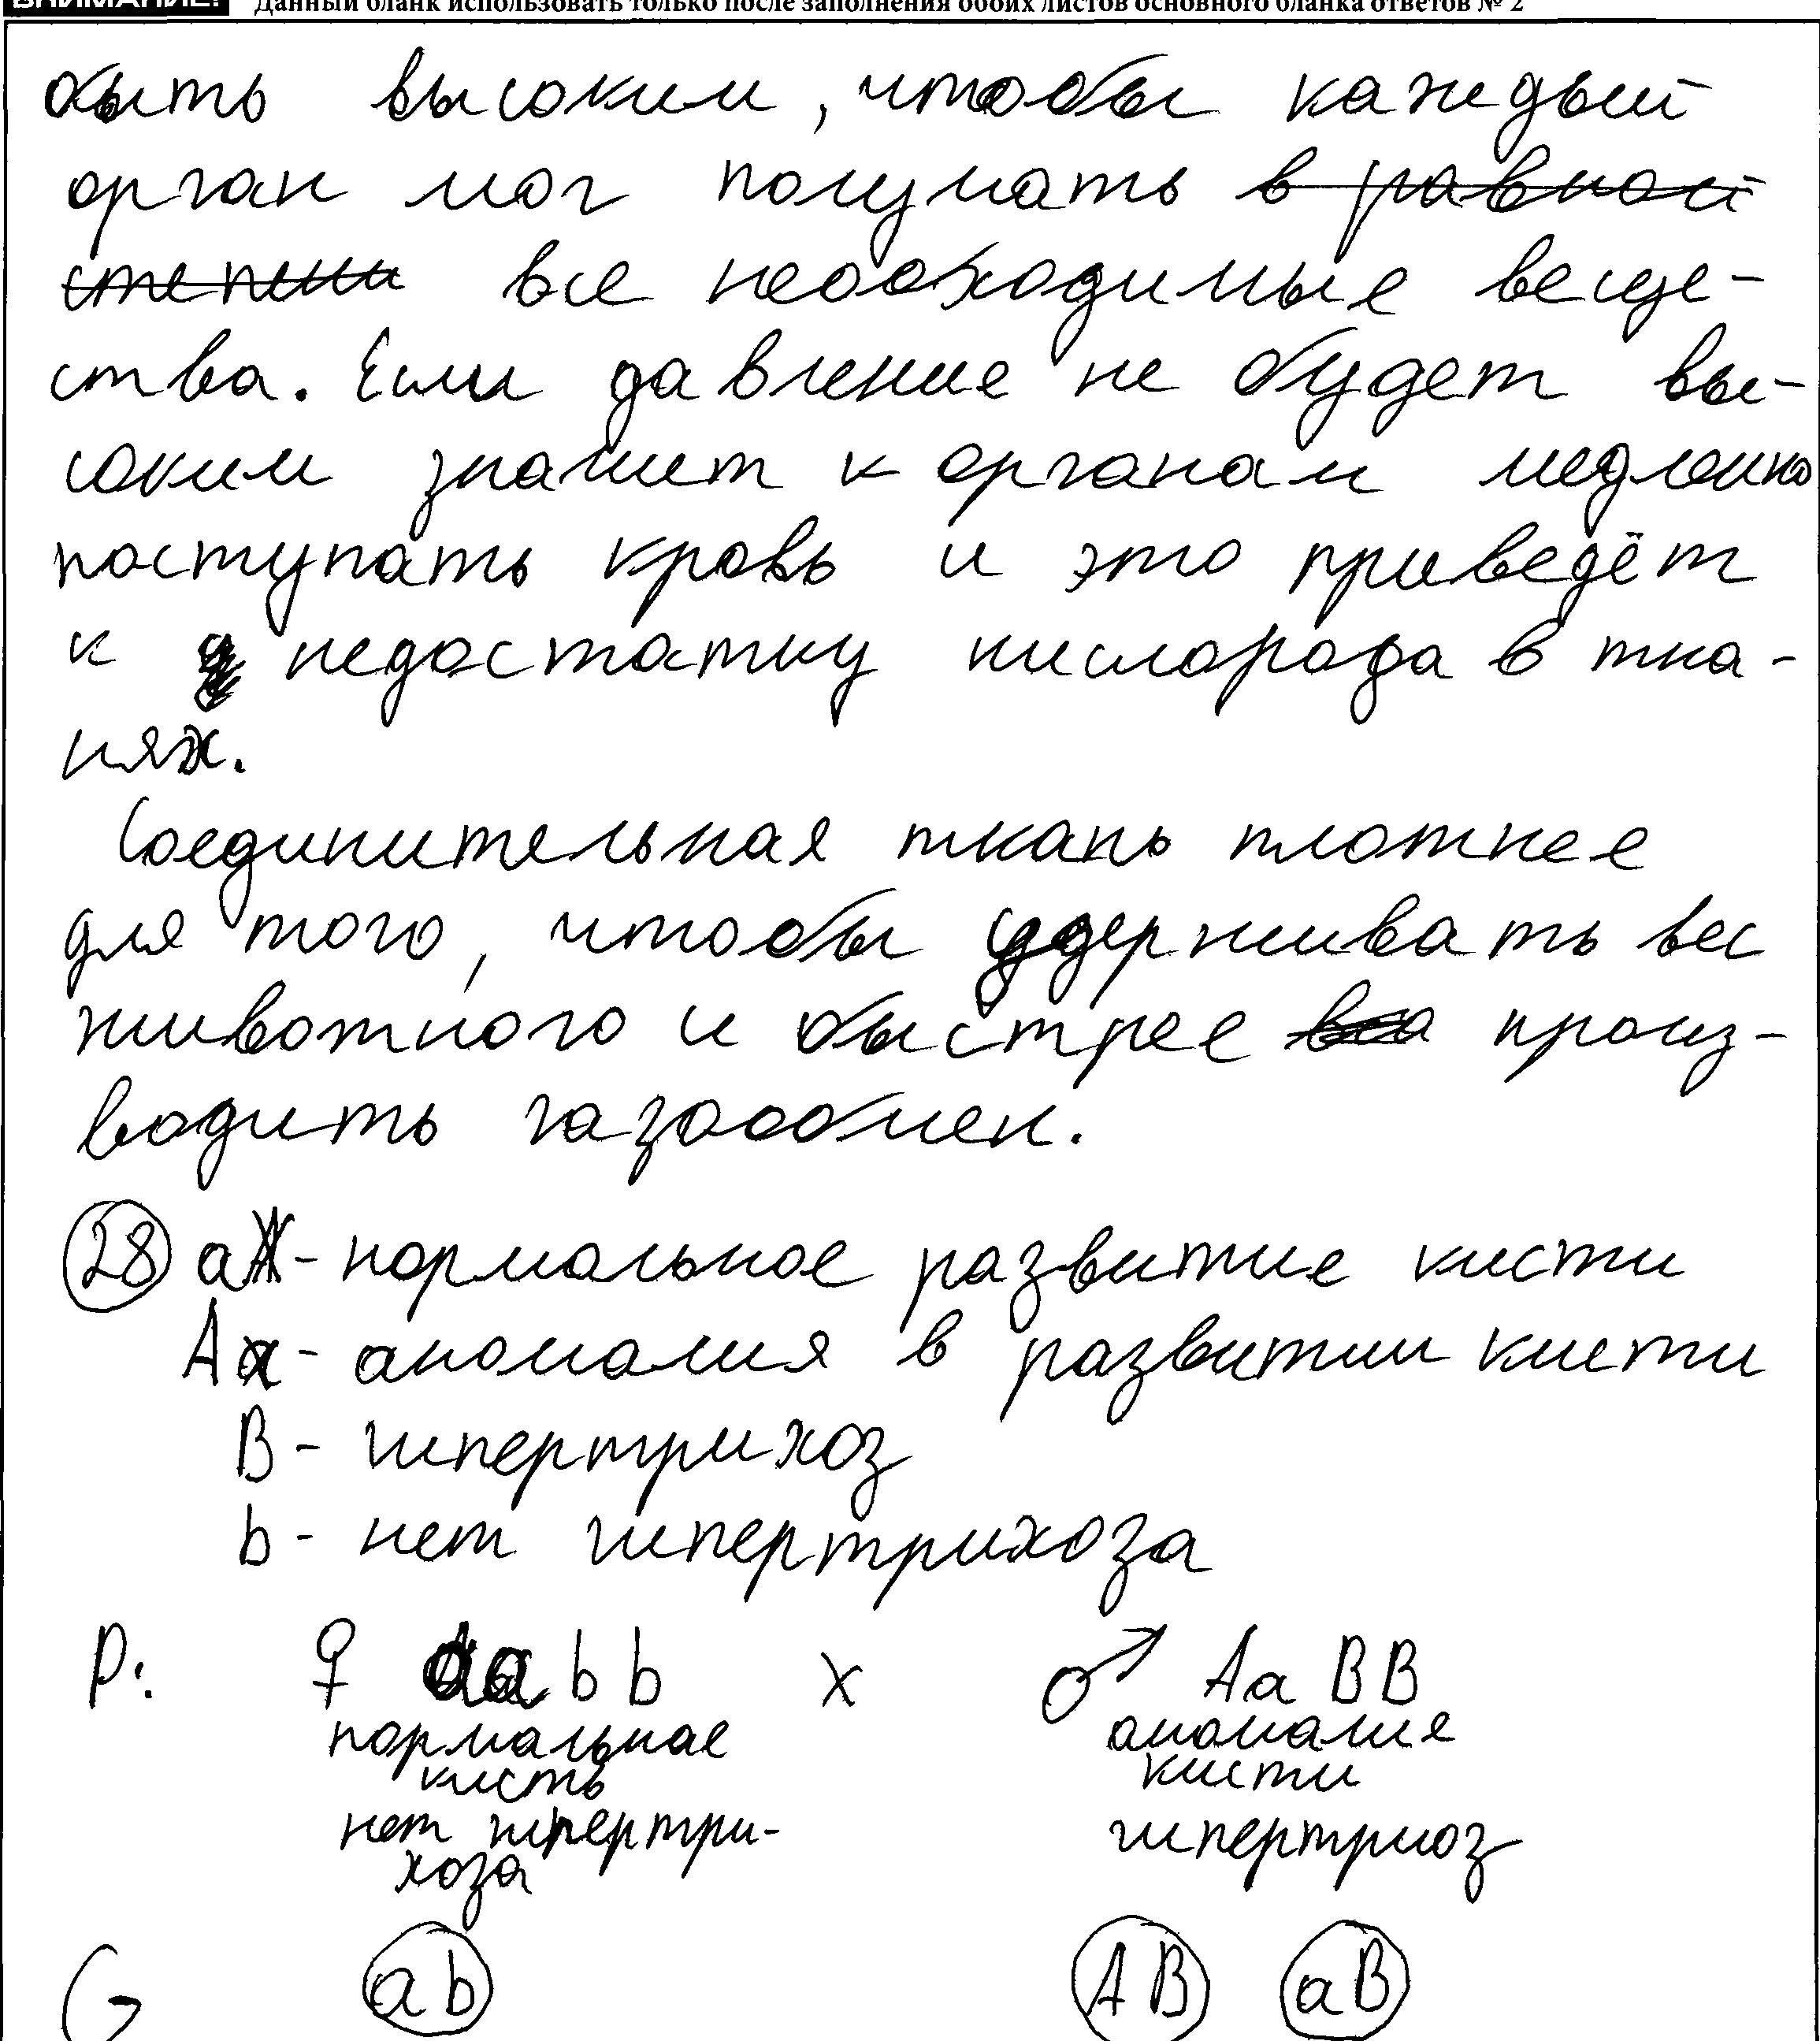 ВНИМАНИЕ! Данный бланк использовать только после заполнения обоих листов основного бланка ответов № 2
быть высоким, чтобы каждый
орган мог получать в равной
степени все необходимые веще-
ства. Если давление не будет вы-
соким значит к органам медленно
поступать кровь и это приведёт
к недостатку кислорода в тка-
нях.
Соединительная ткань плотнее
для того, чтобы удерживать вес
животного и быстрее произ-
водить газообмен.
28 a - нормальное развитие кисти
A - аномалия в развитии кисти
B - гипертрихоз
b - нет гипертрихоза
P: ♀ aabb x ♂ AaBB
нормальное аномалия
кисть кисти
нет гипертри- гипертриоз
хоза
G ab AB aB